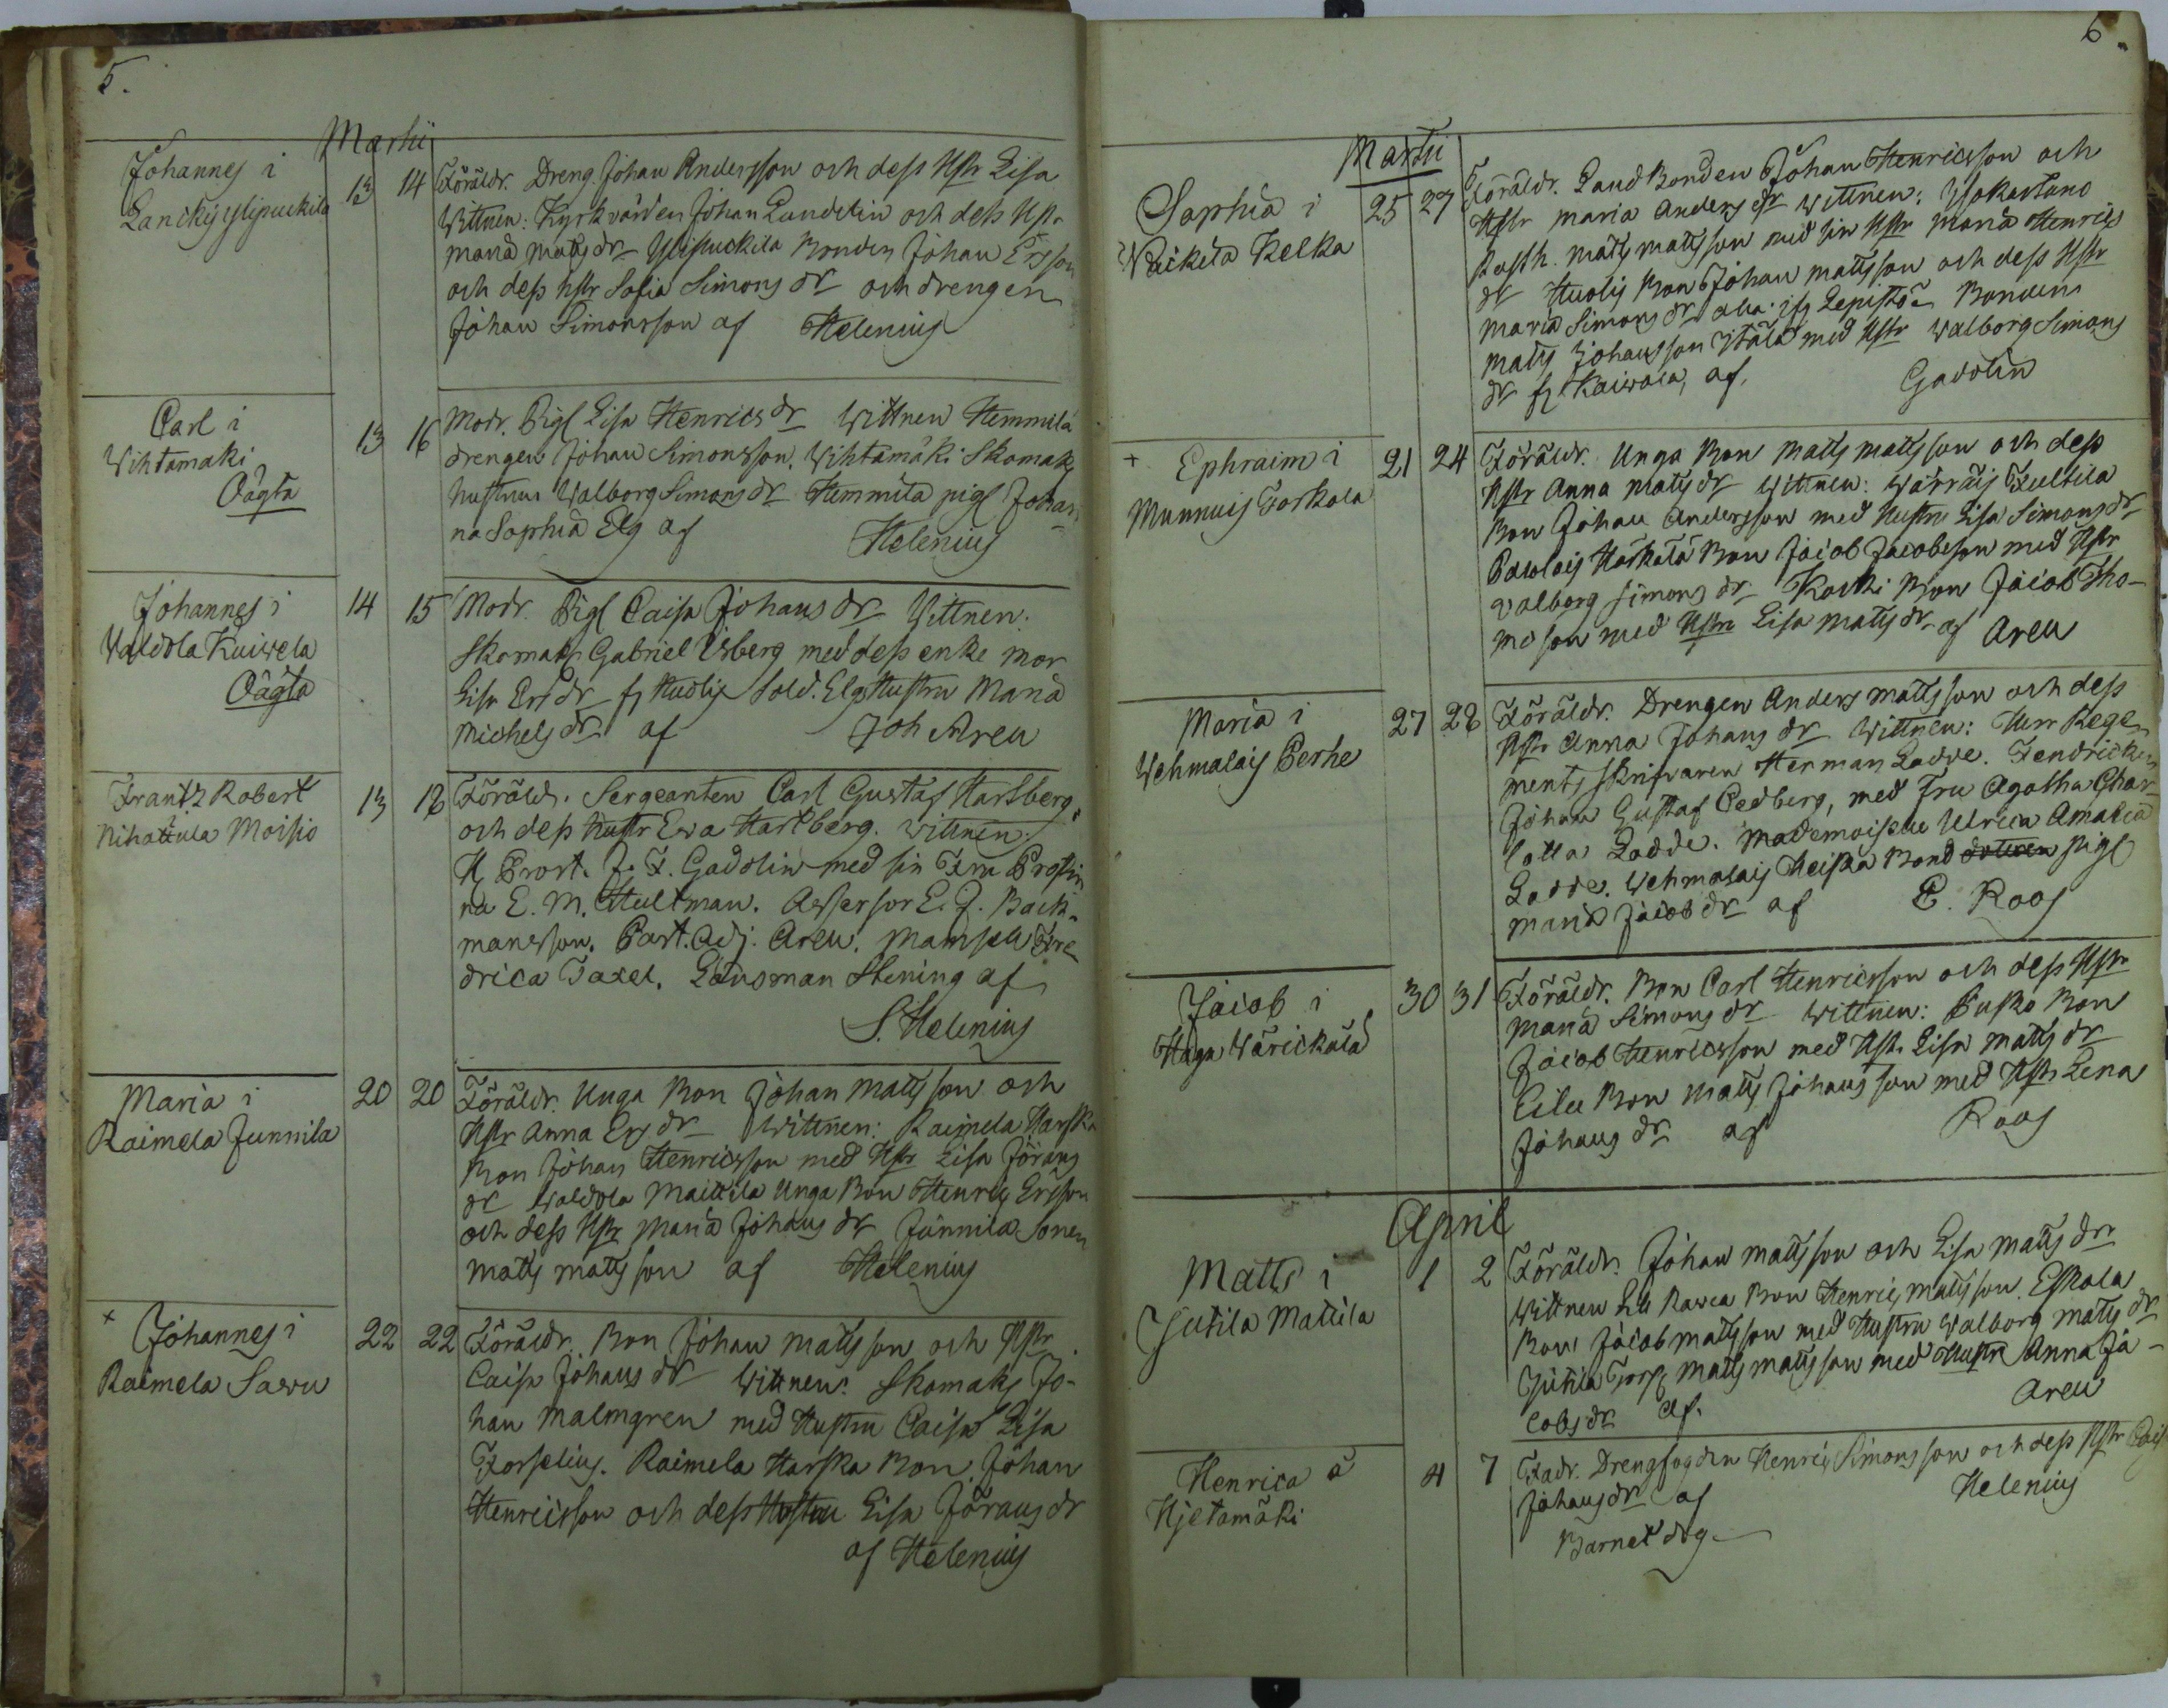 5.
Martii
Johannes i
Lanckis Ylipuckila
13 14 Föräldr. Dreng. Johan Andersson och dess Hstr Lisa
Wittnen: Kyrkvärden Johan Lundelin och dess Hstr
Maria Matsdr Ylipuckila Bonden Johan Ersson
och dess hstr Sofia Simonsdr och drengen
Johan Simonsson af Helenius
Carl i
Wihtamäki
Oägta
13 16 Modr. Pig. Lisa Henricsdr Wittnen Hemmilä
drengen Johan Simonsson. Wihtämäki Skomak.
hustrun Walborg Simonsdr Hemmilä pig. Johan
na Sophia Elg af Helenius
Johannes i
Valdola Kuiwela
Oägta
14 15 Modr. Pig. Caisa Johansdr Vittnen.
Skomak. Gabriel Usberg med dess enke mor
Lisa Ersdr fr. Huolis Sold. Elgs Hustru Maria
Michelsdr af Joh Areu
Frantz Robert
Nihattula Moisio
13 18 Föräldr. Sergeanten Carl Gustaf Hartberg.
och dess Hustr Ewa Hartberg. wittnen.
H. Prost. J. F. Gadolin med sin Fru Prostin
na E. M. Hultman. Assessor E. J. Back-
mansson. Past. Adj. Areu. Mamsell Fre
drica Taxel. Länsman Stening af
S. Helenius
Maria i
Raimela Junnila
20 20 Föräldr. Unga Bon Johan Mattsson och
Hstr Anna Ersdr Wittnen: Raimela Harska
Bon Johan Henricsson med Hstr Lisa Jörans
dr Waldola Maittila Unga Bon Henric Ersson
och dess Hstr Maria Johansdr Junnila Sonen
Matts Mattsson af Helenius
+ Johannes i
Raimela Sawu
22 22 Föräldr. Bon Johan Mattsson och Hstr.
Caisa Johansdr Wittnen. Skomak. Jo-
han Malmgren med Hustru Caisa Lisa
Forselius. Raimela Harska Bon. Johan
Henricsson och dess Hustru Lisa Jöransdr
af Helenius
6.
Martii
Sophia i
Wäickilä Kelka
25 27 Föräldr. LandBonden Johan Henricsson och
Hstr Maria Andersdr Wittnen: Isokartano
Rusth. Matts Mattsson med sin Hstr Maria Henrics
dr Huolis Bon Johan Mattsson och dess Hstr
Maria Simonsdr Lepistö Bonden
Matts Johansson Itälä med Hstr Walborg Simons
dr fr. Kaiwola, af. Gadolin
+ Ephraim i
Munnuis Torkola
21 24 Föräldr. Unga Bon Matts Mattsson och dess
Hstr Anna Matsdr Wittnen: Wärräis Fultila
Bon Johan Andersson med Hustru Lisa Simonsdr
Pawlais Härkälä Bon Jacob Jacobsson med Hstr
Valborg Simonsdr Koski Bon Jacob Tho-
mosson med Hstru Lisa Mattsdr af Areu
Maria i
Wehmalais Perhe
27 28 Föräldr. Drengen Anders Mattsson och dess
Hstr Anna Johansdr Wittnen: Herr Rege
mentsskrifvaren Herman Ladde. Fendricken
Johan Gustaf Cedberg, med Fru Agatha Char
lotta Ladde. Mademoiselle Ulrica Amalia
Ladde. Wehmalais Heiska Bond dottren pig.
Maria Jacobdr af C. Roos
Jacob i
Haga Wärickälä
30 31 Föräldr. Bon Carl Henricsson och dess Hstr
Maria Simonsdr Wittnen: Busko Bon
Jacob Henricsson med Hstr Lisa Mattsdr
Eilu Bon Matts Johansson med Hstr Lena
Johansdr af Roos
April
Matts i
Jutila Mattila
1 2 Föräldr. Johan Mattsson och Lisa Mattsdr
Wittnen Bon Henric Mattsson. Eskola
Bon Jacob Mattsson med Hustru Walborg Mattsdr
Jutila Torp. Matts Mattsson med Hustru Anna Ja-
cobsdr af. Areu
Henrica å
Hjetamäki
4 7 Fadr. Drengfogden Henric Simonsson och dess Hstr Cais
Johansdr af Helenius
Barnet dog